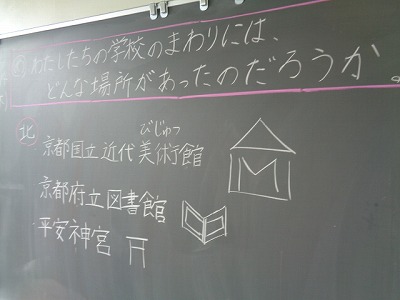 わたしたちの学校のまわりには、
どんな場所があったのだろうか。
北
びじゅつ
京都国立近代美術館
京都府立図書館
平安神宮